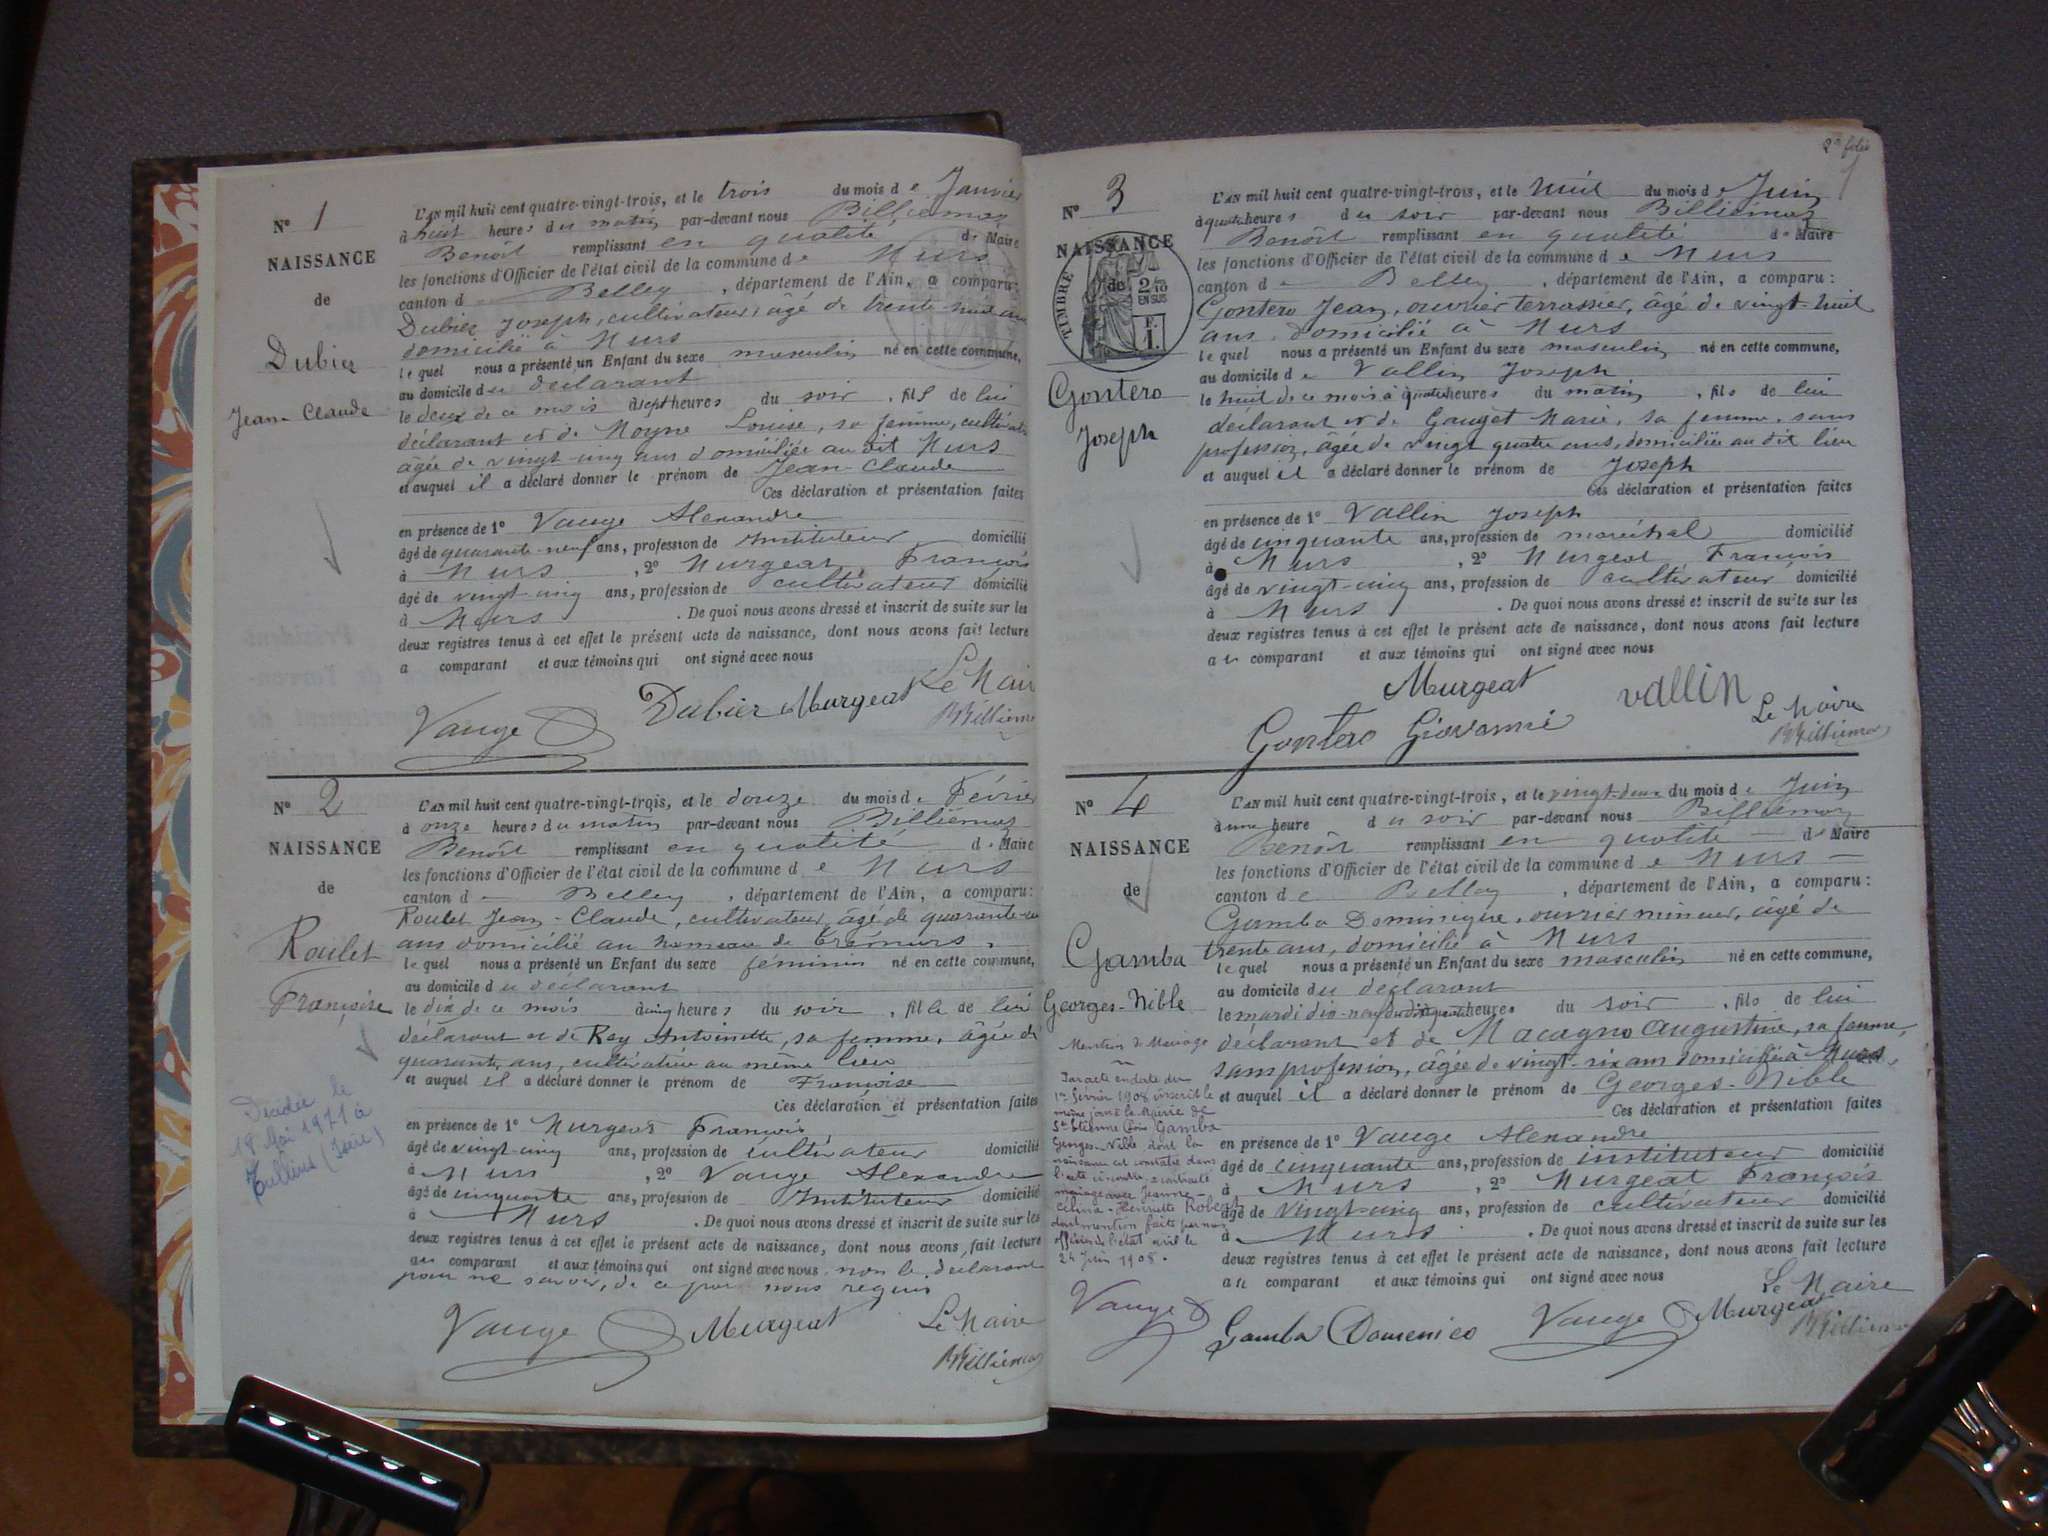 N° 1
NAISSANCE
de
Dubier
Jean-Claude
L'AN mil huit cent quatre-vingt-trois, et le trois du mois de Janvier
à huit heures du matin par-devant nous Billiémaz
Benoît remplissant en qualité de Maire
les fonctions d'Officier de l'état civil de la commune de Murs
canton de Belley, département de l'Ain, a comparu:
Dubier Joseph, cultivateur, âgé de trente-huit ans
domicilié à Murs
lequel nous a présenté un Enfant du sexe masculin né en cette commune,
au domicile du déclarant
le deux de ce mois à sept heures du soir, fils de lui
déclarant et de Moyne Louise, sa femme, cultivatrice
âgée de vingt-cinq ans domiciliée audit Murs
et auquel il a déclaré donner le prénom de Jean-Claude
Ces déclaration et présentation faites
en présence de 1° Vauge Alexandre
âgé de quarante-neuf ans, profession de Instituteur domicilié
à Murs, 2° Murgeat François
âgé de vingt-cinq ans, profession de cultivateur domicilié
à Murs. De quoi nous avons dressé et inscrit de suite sur les
deux registres tenus à cet effet le présent acte de naissance, dont nous avons fait lecture
a comparant et aux témoins qui ont signé avec nous
Vauge Dubier Murgeat Le Maire
BBilliémaz
N° 2
NAISSANCE
de
Roulet
Françoise
Décédée le
18 Mai 1971 à
Tullins (Isère)
L'AN mil huit cent quatre-vingt-trois, et le douze du mois de Février
à onze heures du matin par-devant nous Billiémaz
Benoît remplissant en qualité de Maire
les fonctions d'Officier de l'état civil de la commune de Murs
canton de Belley, département de l'Ain, a comparu:
Roulet Jean-Claude, cultivateur, âgé de quarante-un
ans domicilié au hameau de Crémurs,
lequel nous a présenté un Enfant du sexe féminin né en cette commune,
au domicile du déclarant
le dix de ce mois à cinq heures du soir, fille de lui
déclarant et de Rey Antoinette, sa femme, âgée de
quarante ans, cultivatrice au même lieu
et auquel il a déclaré donner le prénom de Françoise
Ces déclaration et présentation faites
en présence de 1° Murgeat François
âgé de vingt-cinq ans, profession de cultivateur domicilié
à Murs, 2° Vauge Alexandre
âgé de cinquante ans, profession de Instituteur domicilié
à Murs. De quoi nous avons dressé et inscrit de suite sur les
deux registres tenus à cet effet le présent acte de naissance, dont nous avons fait lecture
au comparant et aux témoins qui ont signé avec nous, non le déclarant
pour ne savoir, de ce par nous requis
Vauge Murgeat Le Maire
BBilliémaz
2e folio
N° 3
NAISSANCE
de
TIMBRE
2/10 EN SUS
F. 1.
Gontero
Joseph
L'AN mil huit cent quatre-vingt-trois, et le huit du mois de Juin
à quatre heures du soir par-devant nous Billiémaz
Benoît remplissant en qualité de Maire
les fonctions d'Officier de l'état civil de la commune de Murs
canton de Belley, département de l'Ain, a comparu:
Gontero Jean, ouvrier terrassier, âgé de vingt-huit
ans, domicilié à Murs
lequel nous a présenté un Enfant du sexe masculin né en cette commune,
au domicile de Vallin Joseph
le huit de ce mois à quatre heures du matin, fils de lui
déclarant et de Gauget Marie, sa femme, sans
profession, âgée de vingt quatre ans, domiciliée au dit lieu
et auquel il a déclaré donner le prénom de Joseph
Ces déclaration et présentation faites
en présence de 1° Vallin Joseph
âgé de cinquante ans, profession de maréchal domicilié
à Murs, 2° Murgeat François
âgé de vingt-cinq ans, profession de cultivateur domicilié
à Murs. De quoi nous avons dressé et inscrit de suite sur les
deux registres tenus à cet effet le présent acte de naissance, dont nous avons fait lecture
au comparant et aux témoins qui ont signé avec nous
Murgeat vallin Le Maire
Gontero Giovanni BBilliémaz
N° 4
NAISSANCE
de
Gamba
Georges-Nible
Mention de Mariage
Par acte en date du
1er février 1908 inscrit le
même jour à la Mairie de
St Etienne (Loire) Gamba
Georges-Nible dont la
naissance est constatée dans
l'acte ci-contre, a contracté
mariage avec Jeanne-
Célina-Henriette Robert
dont mention faite par nous
officier de l'état civil le
24 Juin 1908.
Vauge
L'AN mil huit cent quatre-vingt-trois, et le vingt-deux du mois de Juin
à une heure du soir par-devant nous Billiémaz
Benoît remplissant en qualité de Maire
les fonctions d'Officier de l'état civil de la commune de Murs
canton de Belley, département de l'Ain, a comparu:
Gamba Dominique, ouvrier mineur, âgé de
trente ans, domicilié à Murs
lequel nous a présenté un Enfant du sexe masculin né en cette commune,
au domicile du déclarant
le mardi dix-neuf du dit heures du soir, fils de lui
déclarant et de Macagno Augustine, sa femme,
sans profession, âgée de vingt-six ans domiciliée à Murs,
et auquel il a déclaré donner le prénom de Georges-Nible
Ces déclaration et présentation faites
en présence de 1° Vauge Alexandre
âgé de cinquante ans, profession de instituteur domicilié
à Murs, 2° Murgeat François
âgé de vingt-cinq ans, profession de cultivateur domicilié
à Murs. De quoi nous avons dressé et inscrit de suite sur les
deux registres tenus à cet effet le présent acte de naissance, dont nous avons fait lecture
au comparant et aux témoins qui ont signé avec nous
Gamba Domenico Vauge Murgeat Le Maire
BBilliémaz